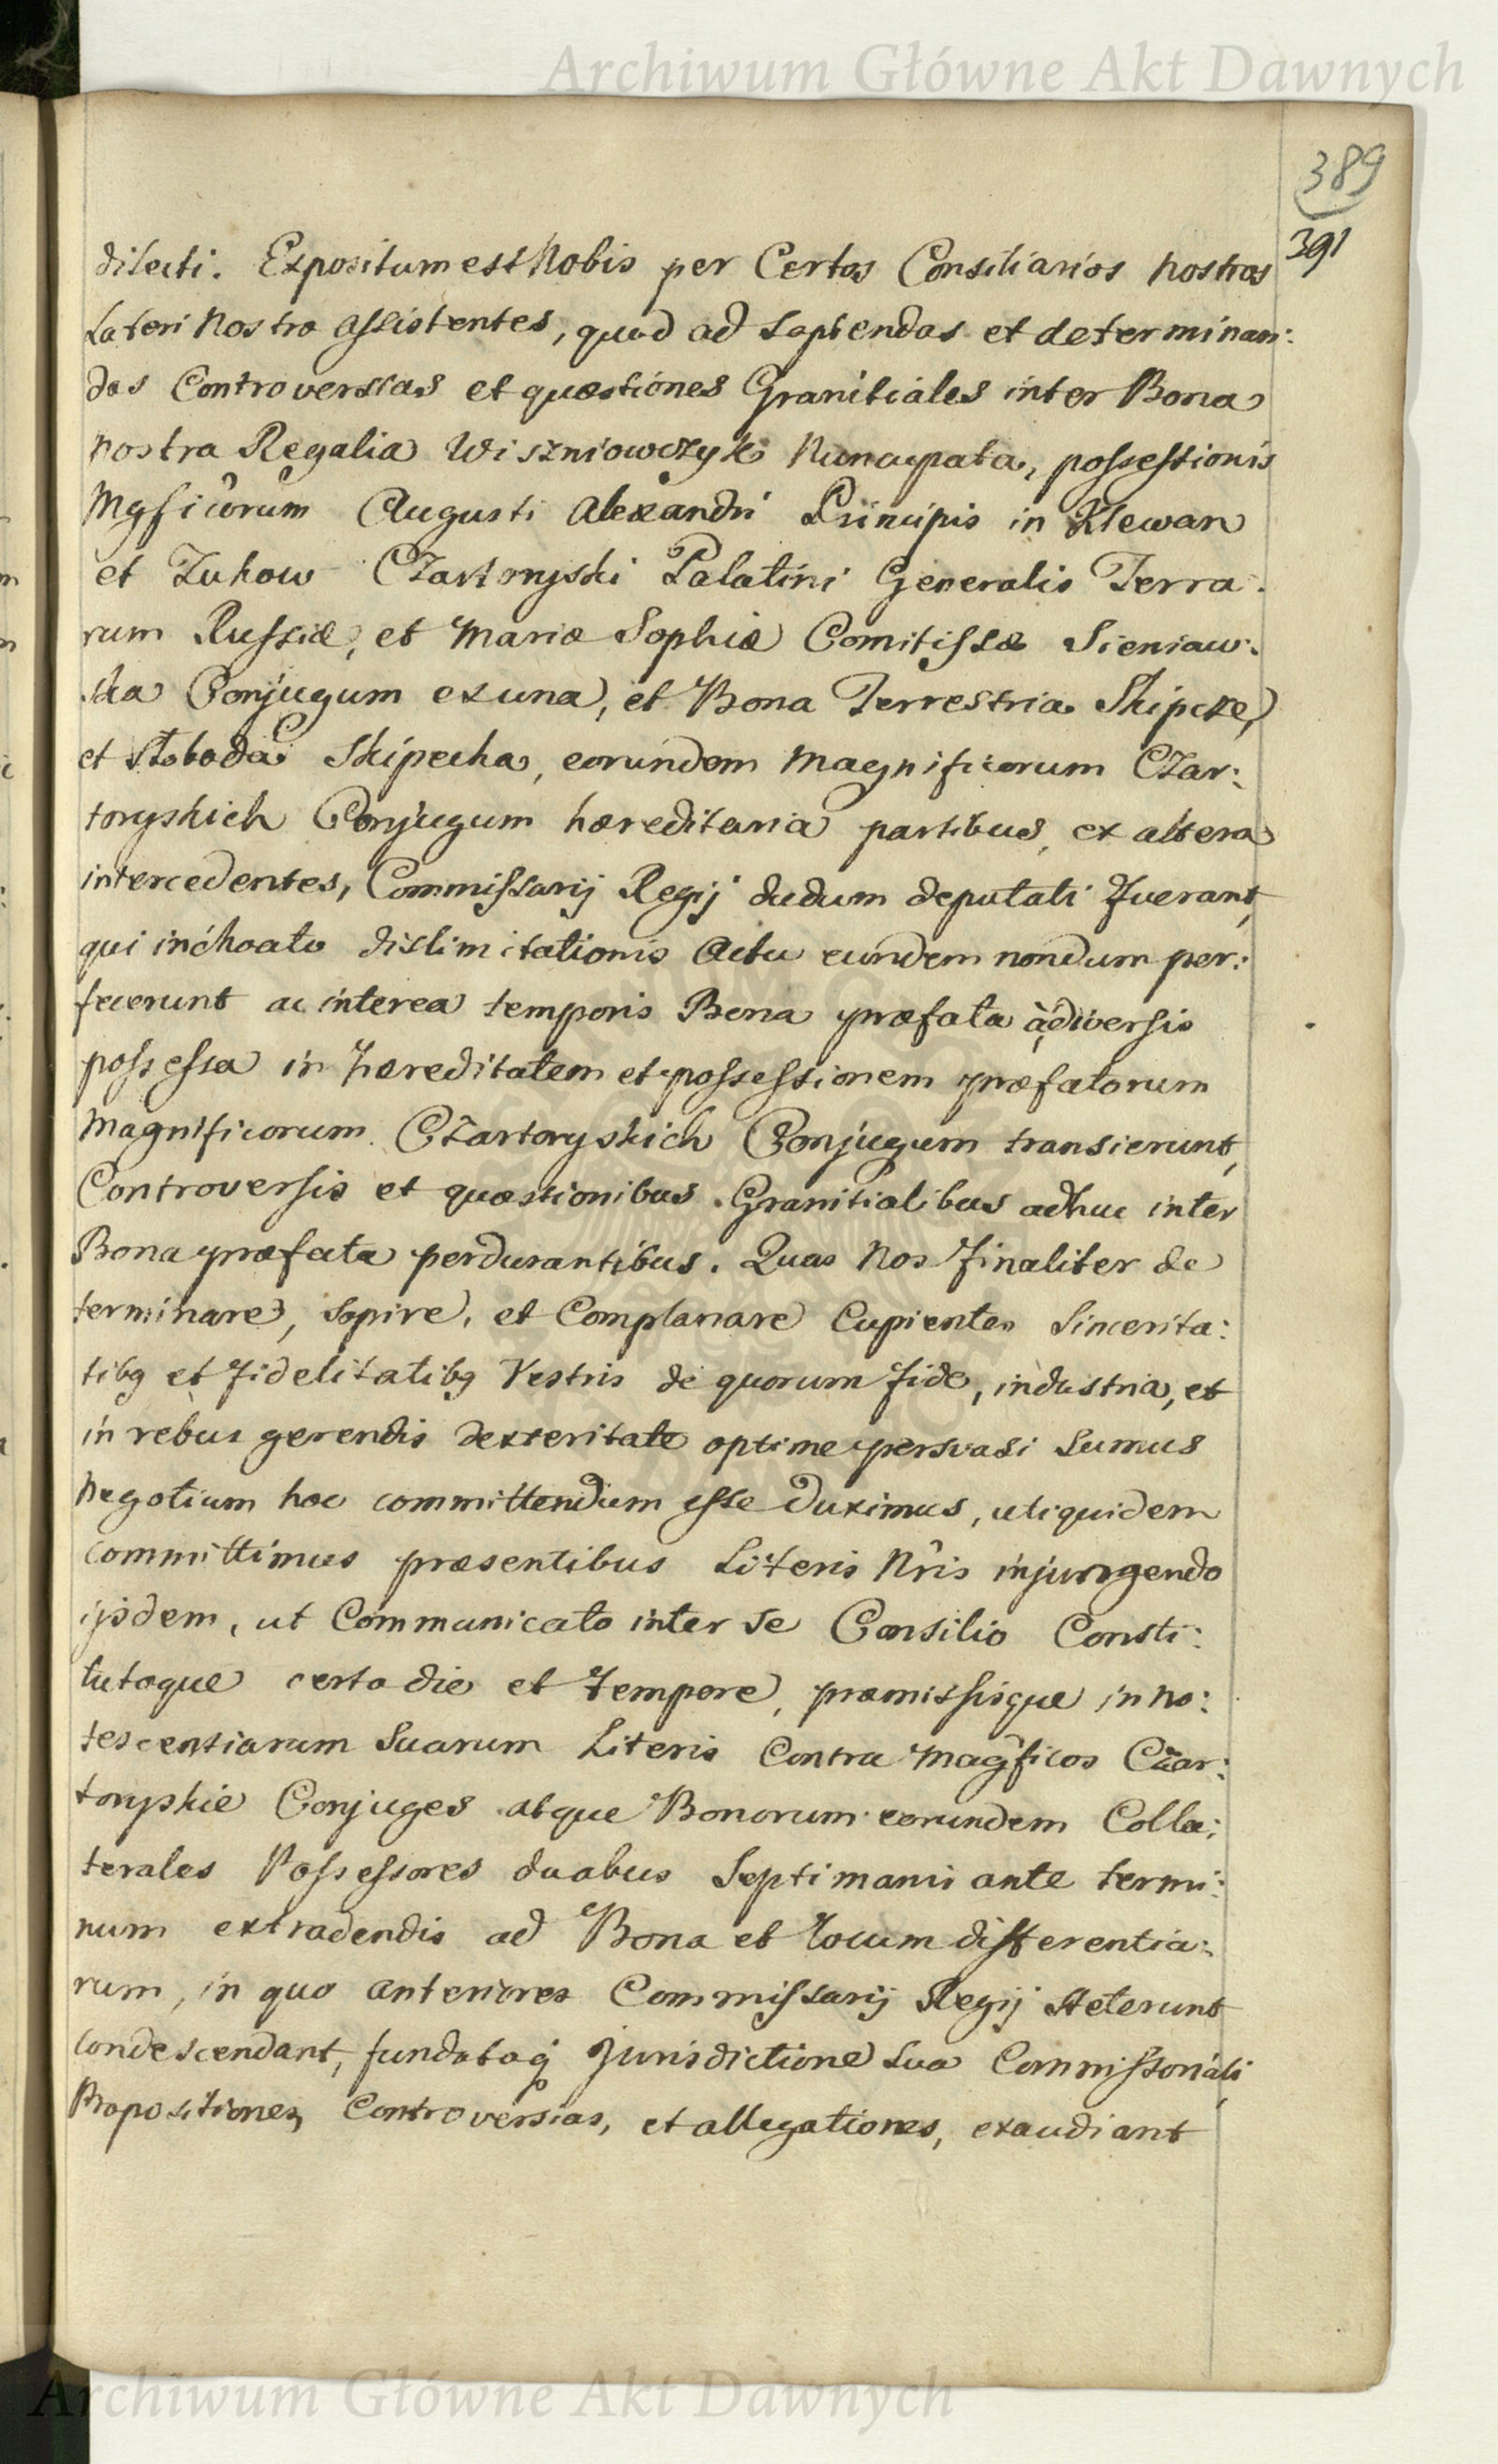 Archiwum Główne Akt Dawnych
389
391
dilecti. Expositum est Nobis per Certos Consiliarios Nostros
Lateri Nostro assistentes, quod ad sopiendas et determinan:
das Controversias et quæstiones Granitiales inter Bona
Nostra Regalia Wiszniowczyk Nuncupata, possessionis
Mgficorum Augusti Alexandri Principis in Klewan
et Zukow Czartoryski Palatini Generalis Terra:
rum Russiæ, et Mariæ Sophiæ Comitissæ Sieniaw:
ska Conjugum ex una, et Bona Terrestria Skipcze,
et Słoboda Skipecka, eorundem Magnificorum Czar:
toryskich Conjugum hæreditaria partibus, ex altera
intercedentes, Commissarij Regij dudum deputati fuerant,
qui inchoato dislimitationis Actu eundem nondum per:
fecerunt ac interea temporis Bona præfata à diversis
possessa in hæreditatem et possessionem præfatorum
Magnificorum Czartoryskich Conjugum transierunt,
Controversis et quæstionibus Granitialibus adhuc inter
Bona præfata perdurantibus. Quas Nos finaliter de
terminare, sopire, et Complanare Cupientes Sincerita:
tibq et fidelitatibq Vestris de quorum fide, industria, et
in rebus gerendis dexteritate optime persvasi sumus
Negotium hoc committendum esse duximus, uti quidem
committimus præsentibus Literis Nris injungendo
ijsdem, ut Communicato inter se Consilio Consti:
tutoque certo die et tempore, præmissisque inno:
tescentiarum Suarum Literis Contra Magficos Czar:
toryskie Conjuges atque Bonorum eorundem Colla:
terales Possessores duabus Septimanis ante termi:
num extradendis ad Bona et locum differentia:
rum, in quo anteriores Commissarij Regij steterunt
condescendant, fundataq Jurisdictione sua Commissoriali,
Propositiones, Controversias, et allegationes, exaudiant
Archiwum Główne Akt Dawnych